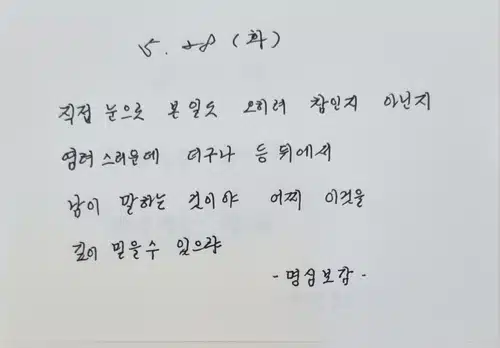 5. 28 (화)
직접 눈으로 본 일도 오히려 참인지 아닌지
염려 스러운데 더구나 등 뒤에서
남이 말하는 것이야 어찌 이것을
깊이 믿을수 있으랴
- 명심보감 -